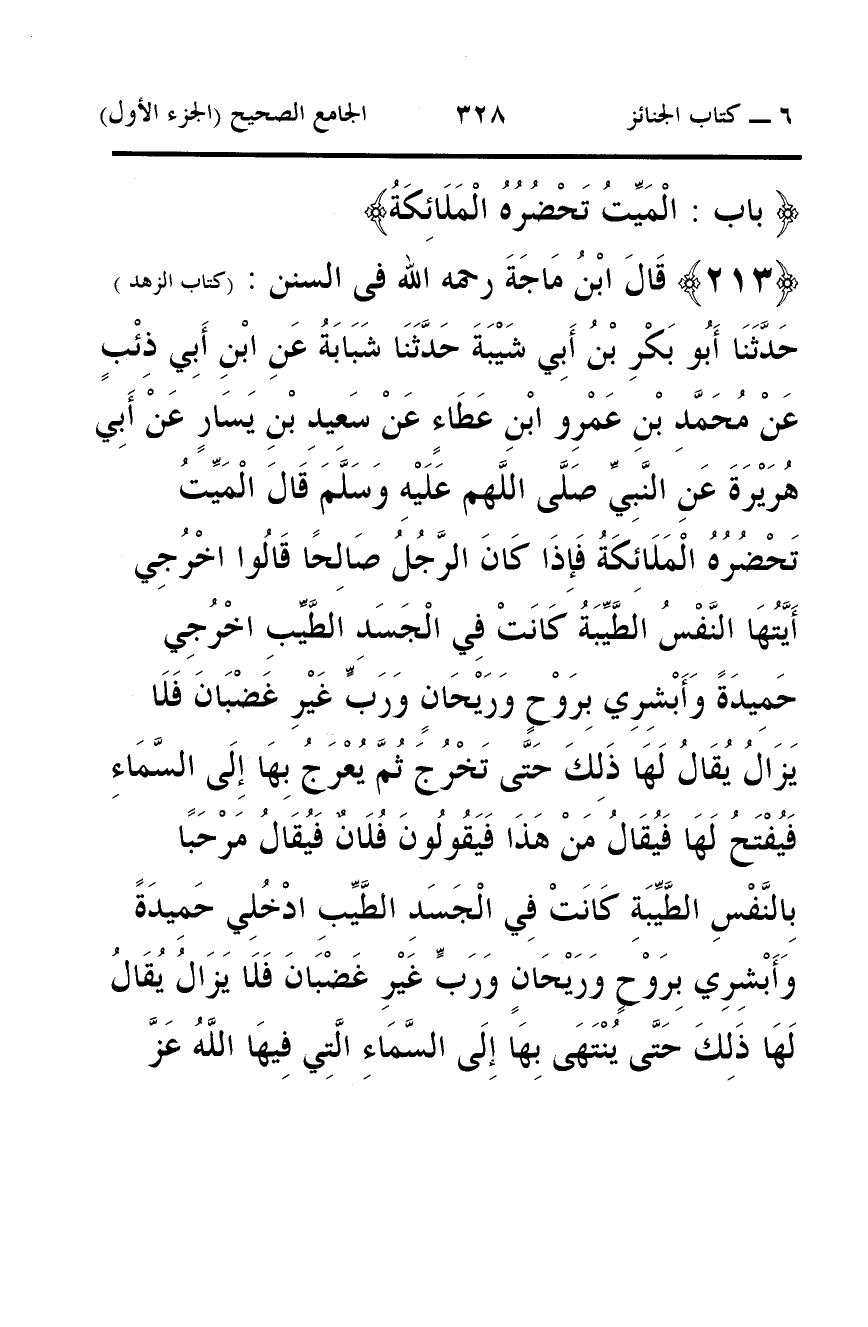 ٦ ـــ كتاب الجنائز ٣٢٨ الجامع الصحيح (الجزء الأول)
﴿ باب : الْمَيِّتُ تَحْضُرُهُ الْمَلَائِكَةُ﴾
﴿٢١٣﴾ قَالَ ابْنُ مَاجَةَ رحمه الله فى السنن : (كتاب الزهد )
حَدَّثَنَا أَبُو بَكْرِ بْنُ أَبِي شَيْبَةَ حَدَّثَنَا شَبَابَةُ عَنِ ابْنِ أَبِي ذِئْبٍ
عَنْ مُحَمَّدِ بْنِ عَمْرِو ابْنِ عَطَاءٍ عَنْ سَعِيدِ بْنِ يَسَارٍ عَنْ أَبِي
هُرَيْرَةَ عَنِ النَّبِيِّ صَلَّى اللَّهم عَلَيْهِ وَسَلَّمَ قَالَ الْمَيِّتُ
تَحْضُرُهُ الْمَلَائِكَةُ فَإِذَا كَانَ الرَّجُلُ صَالِحًا قَالُوا اخْرُجِي
أَيَّتُهَا النَّفْسُ الطَّيِّبَةُ كَانَتْ فِي الْجَسَدِ الطَّيِّبِ اخْرُجِي
حَمِيدَةً وَأَبْشِرِي بِرَوْحٍ وَرَيْحَانٍ وَرَبٍّ غَيْرِ غَضْبَانَ فَلَا
يَزَالُ يُقَالُ لَهَا ذَلِكَ حَتَّى تَخْرُجَ ثُمَّ يُعْرَجُ بِهَا إِلَى السَّمَاءِ
فَيُفْتَحُ لَهَا فَيُقَالُ مَنْ هَذَا فَيَقُولُونَ فُلَانٌ فَيُقَالُ مَرْحَبًا
بِالنَّفْسِ الطَّيِّبَةِ كَانَتْ فِي الْجَسَدِ الطَّيِّبِ ادْخُلِي حَمِيدَةً
وَأَبْشِرِي بِرَوْحٍ وَرَيْحَانٍ وَرَبٍّ غَيْرِ غَضْبَانَ فَلَا يَزَالُ يُقَالُ
لَهَا ذَلِكَ حَتَّى يُنْتَهَى بِهَا إِلَى السَّمَاءِ الَّتِي فِيهَا اللَّهُ عَزَّ